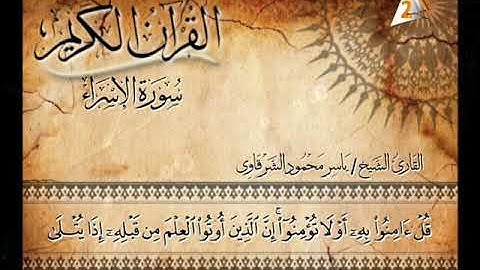 2
القرآن الكريم
سُورَةُ الإِسْرَاءِ
القارئ الشيخ / ياسر محمود الشرقاوى
قُلْ ءَامِنُوا۟ بِهِۦٓ أَوْ لَا تُؤْمِنُوٓا۟ ۚ إِنَّ ٱلَّذِينَ أُوتُوا۟ ٱلْعِلْمَ مِن قَبْلِهِۦٓ إِذَا يُتْلَىٰ